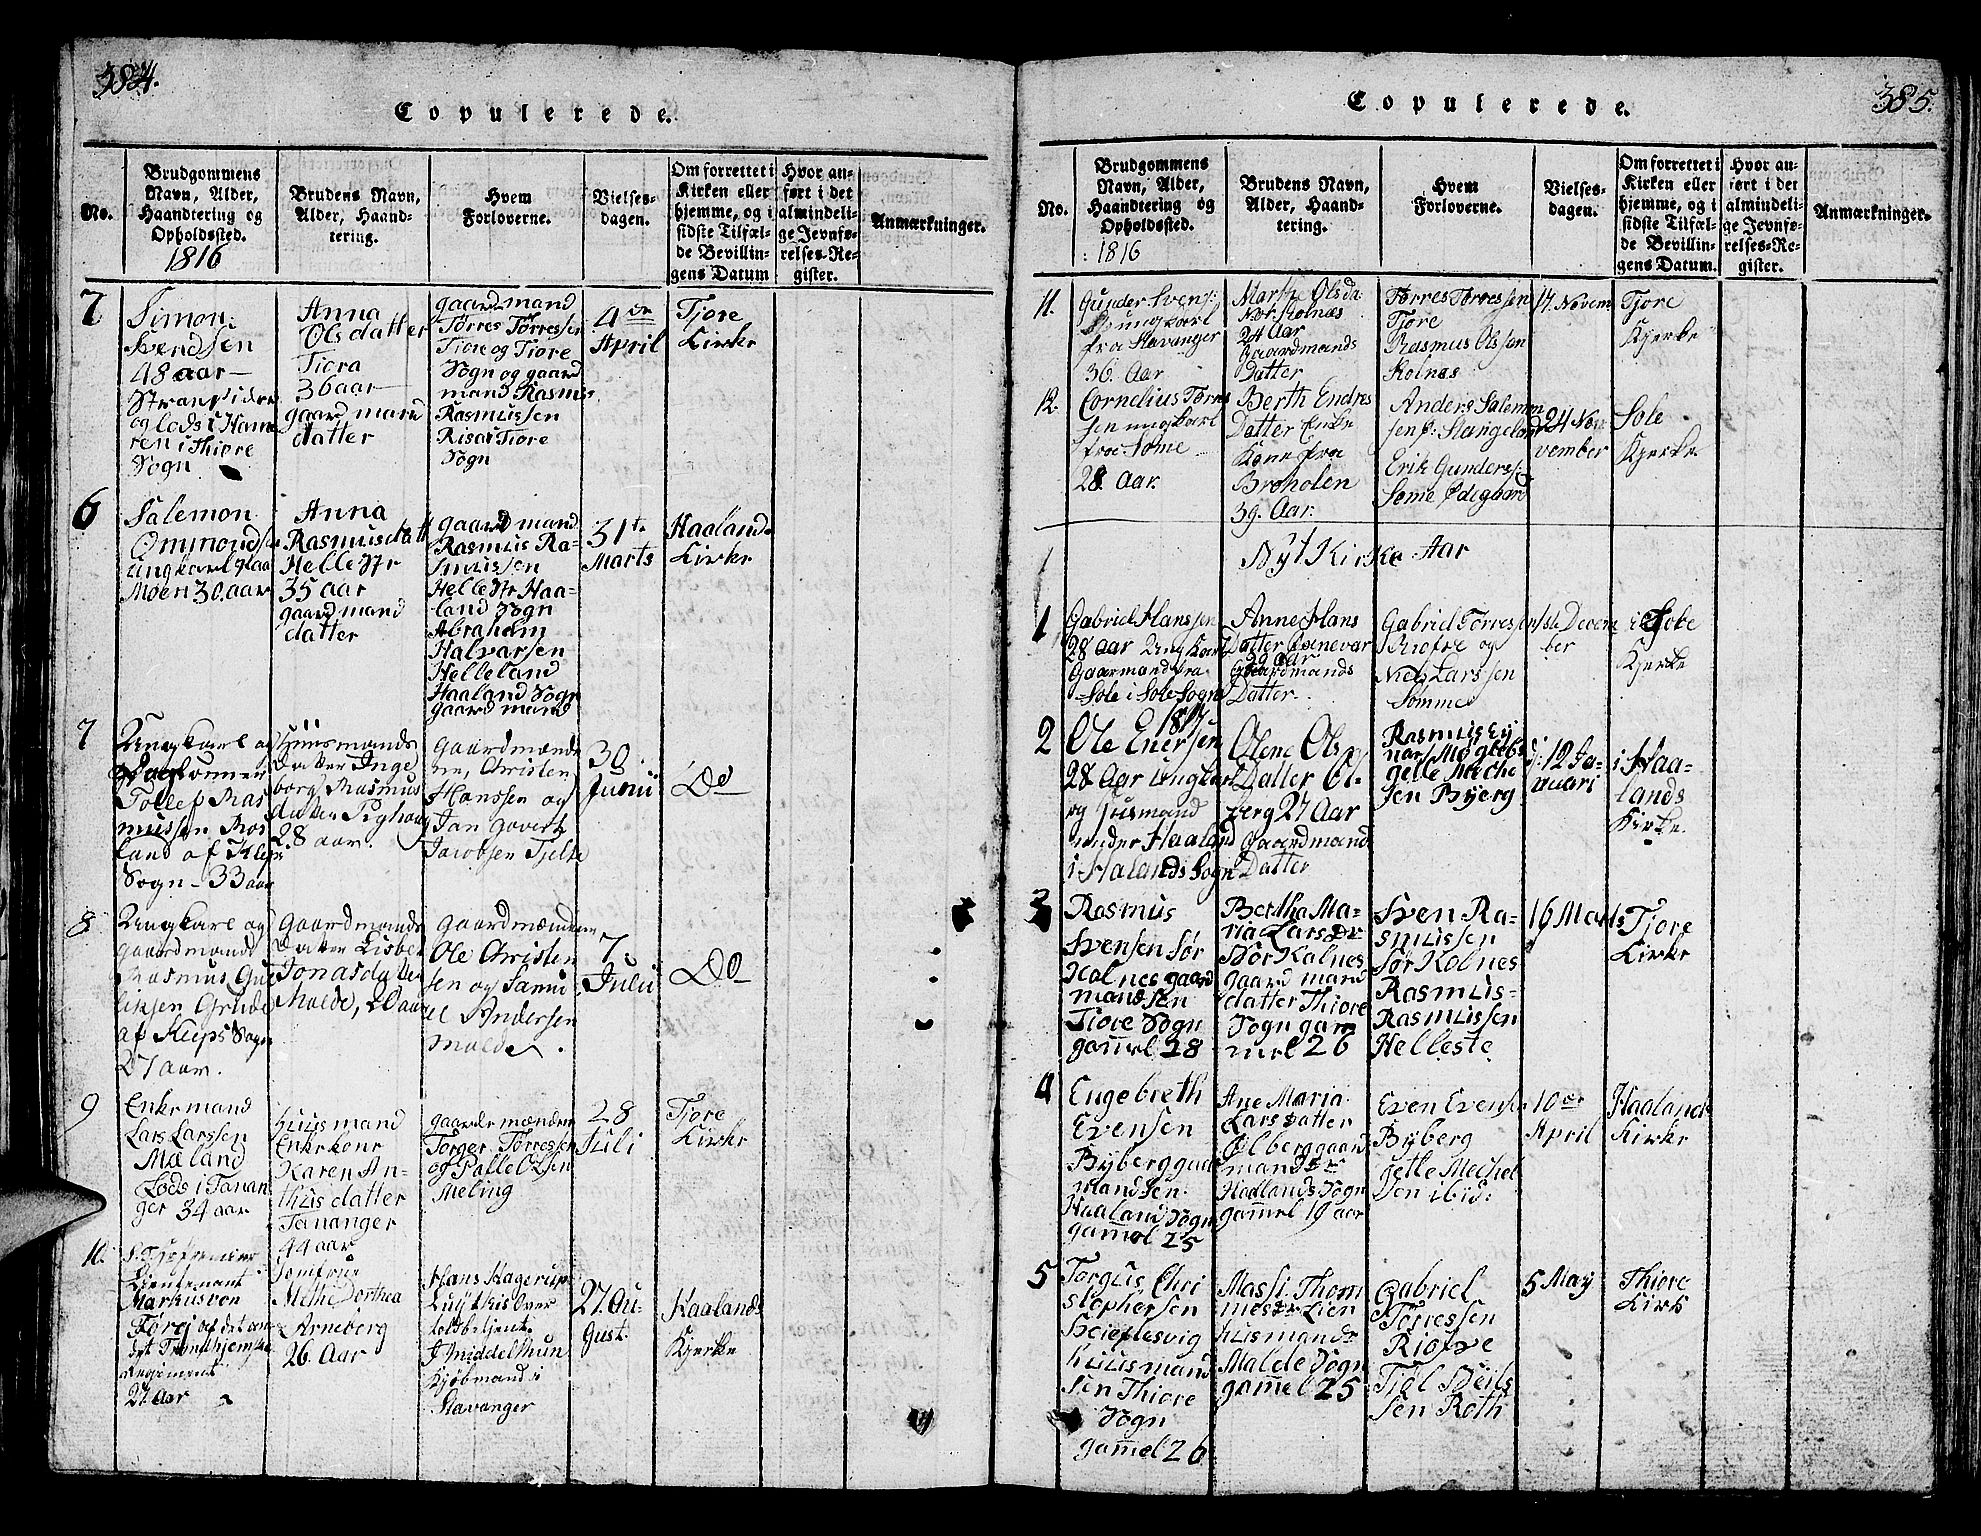 384.
Copulerede.
No.
Brudgommens
Navn, Alder,
Haandtering og
Opholdssted.
1816
Brudens Navn,
Alder, Haand-
tering.
Hvem
Forloverne.
Vielses-
dagen.
Om forrettet i
Kirken eller
hjemme, og i
sidste Tilfæl-
de Bevillin-
gens Datum
Hvor an-
ført i det
almindeli-
ge Jevnfø-
relses-Re-
gister.
Anmærkninger.
7
Simon
Svendsen
48 aar
og lods i
ren i Thiore
Sogn
Anna
Olsdatter
Tiora
36 aar
gaardmand
datter
gaardmand
Tørres Tørressen
Tiore og Tiore
Sogn og gaard
mand Rasmus
Rasmussen
Risa i Tiore
Sogn
4de
April
Tjore
Kirke
6
Salemon
Ommundsen
ungkarl Haa
Moen 30. aar
Anna
Rasmusdatt
Helle Str
35 aar
gaardmand
datter
gaardmand
Rasmus Ra-
smussen
Helle Str Haa-
land Sogn
Abraham
Halvarsen
Helleland
Haaland Sogn
gaardmand
31te
Marts
Haalands
Kirke
7
Ungkarl og
Tollef Ras
mussen Ros
land af Klep
Sogn - 33 aar
Huusmands
Datter Inge
borg Rasmus
datter
28 aar.
Gaardmænde
ne, Christen
Hanssen og
Jan Govert
Jacobsen Tjelte
30
Junii
Do
8
Ungkarl og
gaardmand
Rasmus Gu
liksen Grude
af Kleps Sogn
27 aar.
Gaardmands
Datter Lisbet
Jonasdatter
Malde, 20 aar
Gaardmændene
Ole Christen
sen og Samu
el Andersen
Malde.
7
Julii
Do
9
Enkemand
Lars Larssen
Mæland
Lods i Tanan
ger 34 aar
Huusmand
Enkekone
Karen An-
thus datter
Tananger
44 aar
gaardemænden
Torger Tørressen
og Palle Olsen
Meling
28
Juli
Tjore
Kirke
10.
Lieutenant
Markus von
Krogh af det
det Trondhjemske
Regiment
27 Aar
Jomfrue
Methe Dorthea
Arneberg
26. Aar
Hans Hagerup
Over
toldbetjent.
J Middelthun
Kjøbmand i
Stavanger
27. Au-
gust.
Haalands
Kjerke
385.
Copulerede.
No.
Brudgommens
Navn, Alder,
Haandtering og
Opholdssted.
: 1816
Brudens Navn,
Alder, Haand-
tering.
Hvem
Forloverne.
Vielses-
dagen.
Om forrettet i
Kirken eller
hjemme, og i
sidste Tilfæl-
de Bevillin-
gens Datum.
Hvor an-
ført i det
almindeli-
ge Jevnfø-
relses-Re-
gister.
Anmærkninger.
11.
Gunder Svens:
Ungkarl
fra Stavanger
36. Aar
Marthe Olsda:
Nor. Kolnæs
24 Aar
Gaardmands
Datter
Tørres Tørressen
Tjore
Rasmus Olssen
Kolnæs
17 Novem
Tjore
Kjerke
12.
Cornelius Tørres
sen ungkarl
fra Sømme
28. Aar.
Berth Endres
Datter Enke
Kone fra
Broholen
39. Aar.
Anders Salemon
sen p: Stangeland
Erik Gunders:
Sømme Ødegaard
24 No
vember
Sole
Kjerke
Nyt Kirke Aar
1
Gabriel Hanssen
28 Aar Ungkarl
Gaarmand fra
Sole i Sole Sogn
Anne Hans
Datter
29 Aar
Gaardmands
Datter.
Gabriel Tørressen
Riofre og
Niels Larssen
Sømme
1ste Decem
ber
i Sole
Kjerke
2
1817
Ole Enersen
28 Aar Ungkarl
og Husmand
under Haaland
i Halands Sogn
Olene Ols
Datter Øl-
berg 27 Aar
Gaardmands
Datter
Rasmus Ey
gelle Meche
Sen Byberg
d: 12 Ja-
nuari
i Haa-
lands
Kirke.
3
Rasmus
Svensen Sør
Kolnes gaard
mandsen
Tiore Sogn
gammel 28
Bertha Ma-
ria Lars Dr
Sør Kolnes
gaardmand
datter Thiore
Sogn gam
mel 26
Sven Ra-
smussen
Sør Kolnes
Rasmus-
Rasmussen
Helleste
16 Marts
Tjore
Kirke
4
Engebreth
Evensen
Byberg gaar
mandsen
Haaland Sogn
gammel 25
Ane Maria
Larsdatter
Ølberg gaard
mands Dr
Haalands Sogn
gammel 19 aar
Even Evense
Byberg
gelle Mechel
Sen ibid:
10de
April
Haalands
Kirke
5
Torgus Chri
stophersen
Huusmand
sen Thiore
Sogn
gammel 26
Massi Thom
mes Dr Lien
Husmands
Malde Sogn
gammel 25
Gabriel
Tørressen
Riofre
Tiøl Seils
sen Roth
5 May
Thiore
Kirk